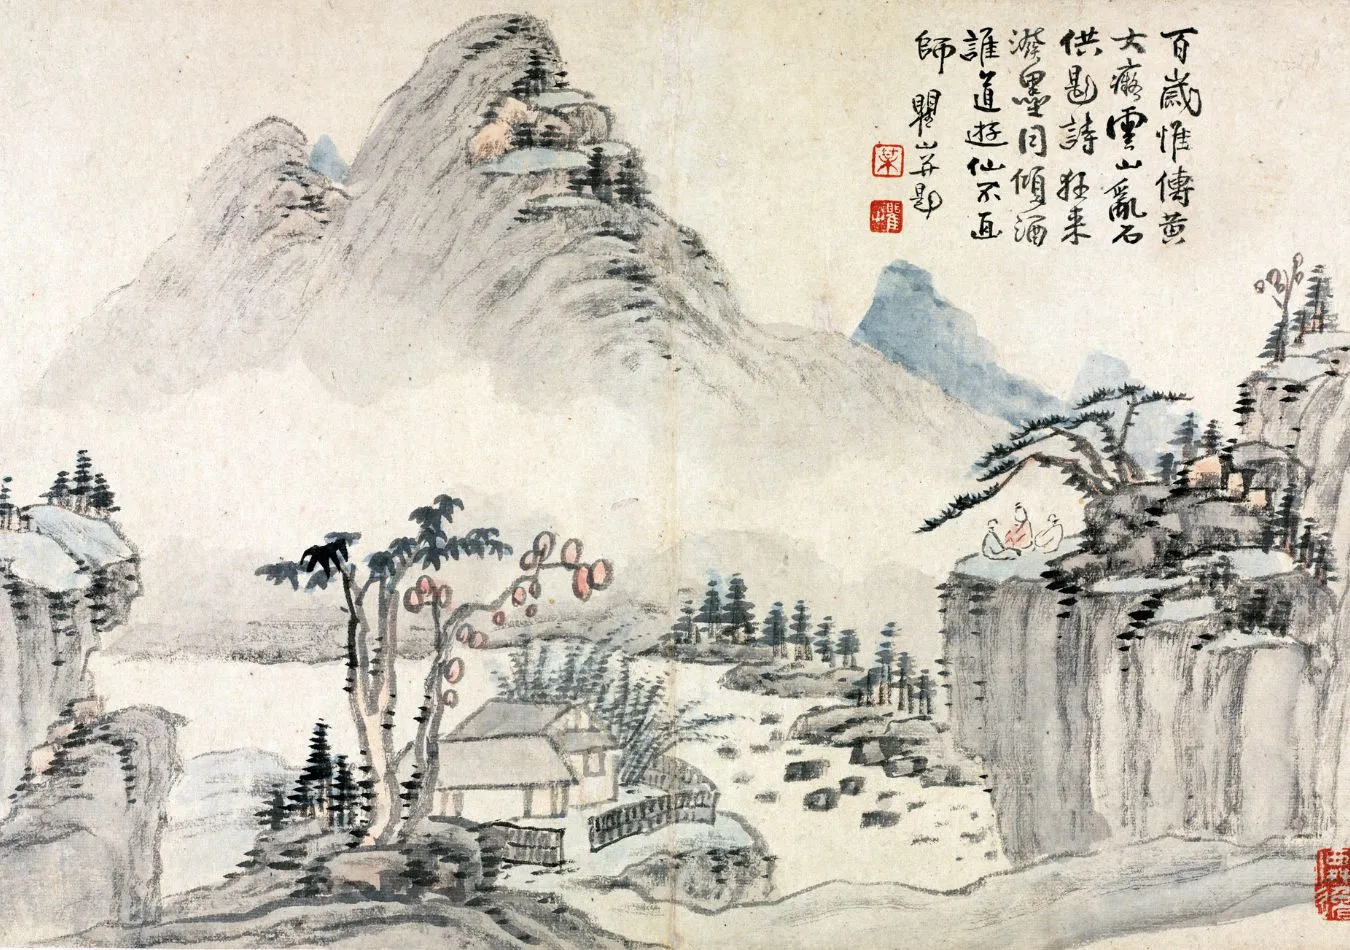 百歲惟傳黃
大癡雲山亂石
供題詩狂来
潑墨同傾酒
誰道遊仙不
師 瞿山并題
某
瞿山